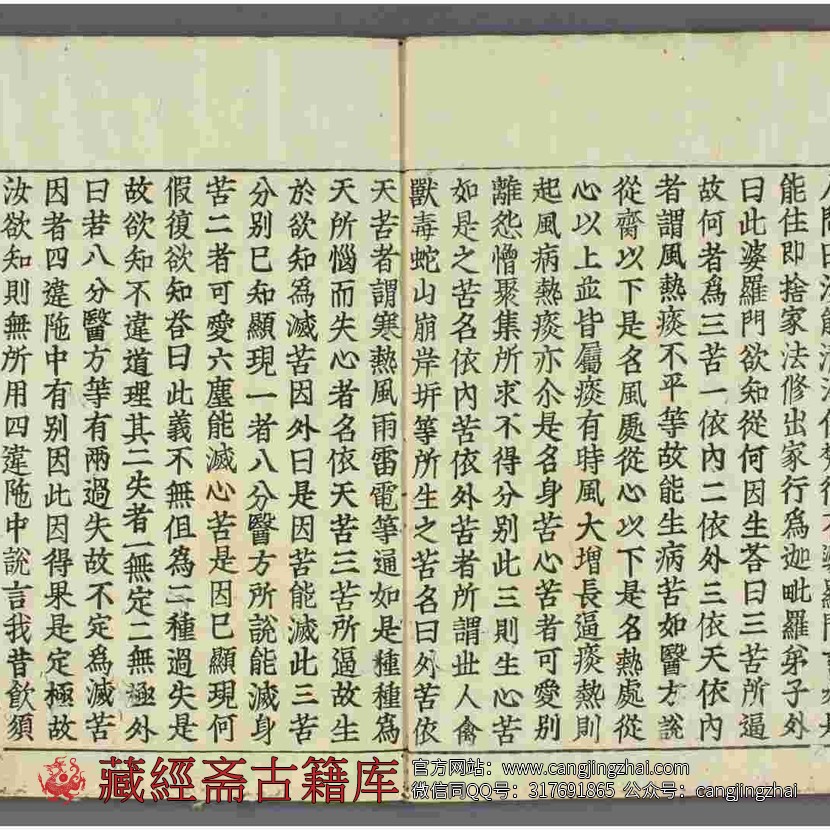 能住即捨家法修出家行為迦毗羅弟子外
曰此婆羅門欲知從何因生荅曰三苦所逼
故何者為三苦一依內二依外三依天依內
者謂風熱痰不平等故能生病苦如醫方說
從齋以下是名風處從心以下是名熱處從
心以上並皆屬痰有時風大增長逼痰熱則
起風病熱痰亦尒是名身苦心苦者可愛別
離怨憎聚集所求不得分別此三則生心苦
如是之苦名依內苦依外苦者所謂世人禽
獸毒蛇山崩岸坼等所生之苦名曰外苦依
天苦者謂寒熱風雨雷電等通如是種種為
天所惱而失心者名依天苦三苦所逼故生
於欲知為滅苦因外曰是因苦能滅此三苦
分別已知顯現一者八分醫方所說能滅身
苦二者可愛六塵能滅心苦是因已顯現何
假復欲知荅曰此義不無但為二種過失是
故欲知不違道理其二失者一無定二無極外
曰若八分醫方等有兩過失故不定為滅苦
因者四違陁中有別因此因得果是定極故
汝欲知則無所用四違陁中說言我昔飲須
藏經斋古籍库
官方网站：www.cangjingzhai.com
微信同QQ号：317691865 公众号：cangjingzhai